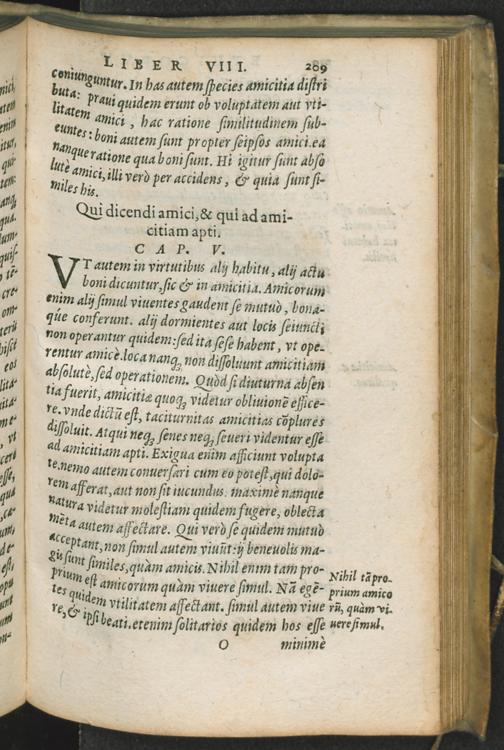 LIBER VIII. 289
coniunguntur. In has autem species amicitia distri
buta: praui quidem erunt ob voluptatem aut vti-
litatem amici, hac ratione similitudinem sub-
euntes: boni autem sunt propter seipsos amici. ea
nanque ratione qua boni sunt. Hi igitur sunt abso
lutè amici, illi verò per accidens, & quia sunt si-
miles his.
Qui dicendi amici, & qui ad ami-
citiam apti.
CAP. V.
VT autem in virtutibus alij habitu, alij actu
boni dicuntur, sic & in amicitia. Amicorum
enim alij simul viuentes gaudent se mutuò, bona-
q́ue conferunt. alij dormientes aut locis seiuncti
non operantur quidem: sed ita sese habent, vt ope-
rentur amicè. loca nanq; non dissoluunt amicitiam
absolutè, sed operationem. Quòd si diuturna absen
tia fuerit, amicitiæ quoq; videtur obliuionē efficere-
re. vnde dictū est, taciturnitas amicitias cōplures
dissoluit. Atqui neq; senes neq; seueri videntur esse
ad amicitiam apti. Exigua enim afficiunt volupta
te. nemo autem conuersari cum eo potest, qui dolo-
rem afferat, aut non sit iucundus. maximè nanque
natura videtur molestiam quidem fugere, oblecta
mēta autem affectare. Qui verò se quidem mutuò
acceptant, non simul autem viuūt: ij beneuolis ma-
gis sunt similes, quàm amicis. Nihil enim tam pro-
prium est amicorum quàm viuere simul. Nā egē-
tes quidem vtilitatem affectant. simul autem viue
re, & ipsi beati. etenim solitarios quidem hos esse
O minimè
Nihil tā pro-
prium amico
rū, quàm vi-
uere simul.